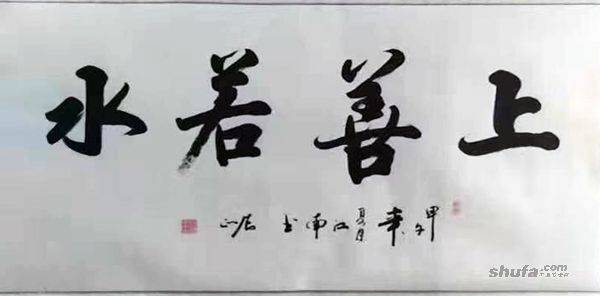 上善若水
甲午夏月江南书
shufa.com